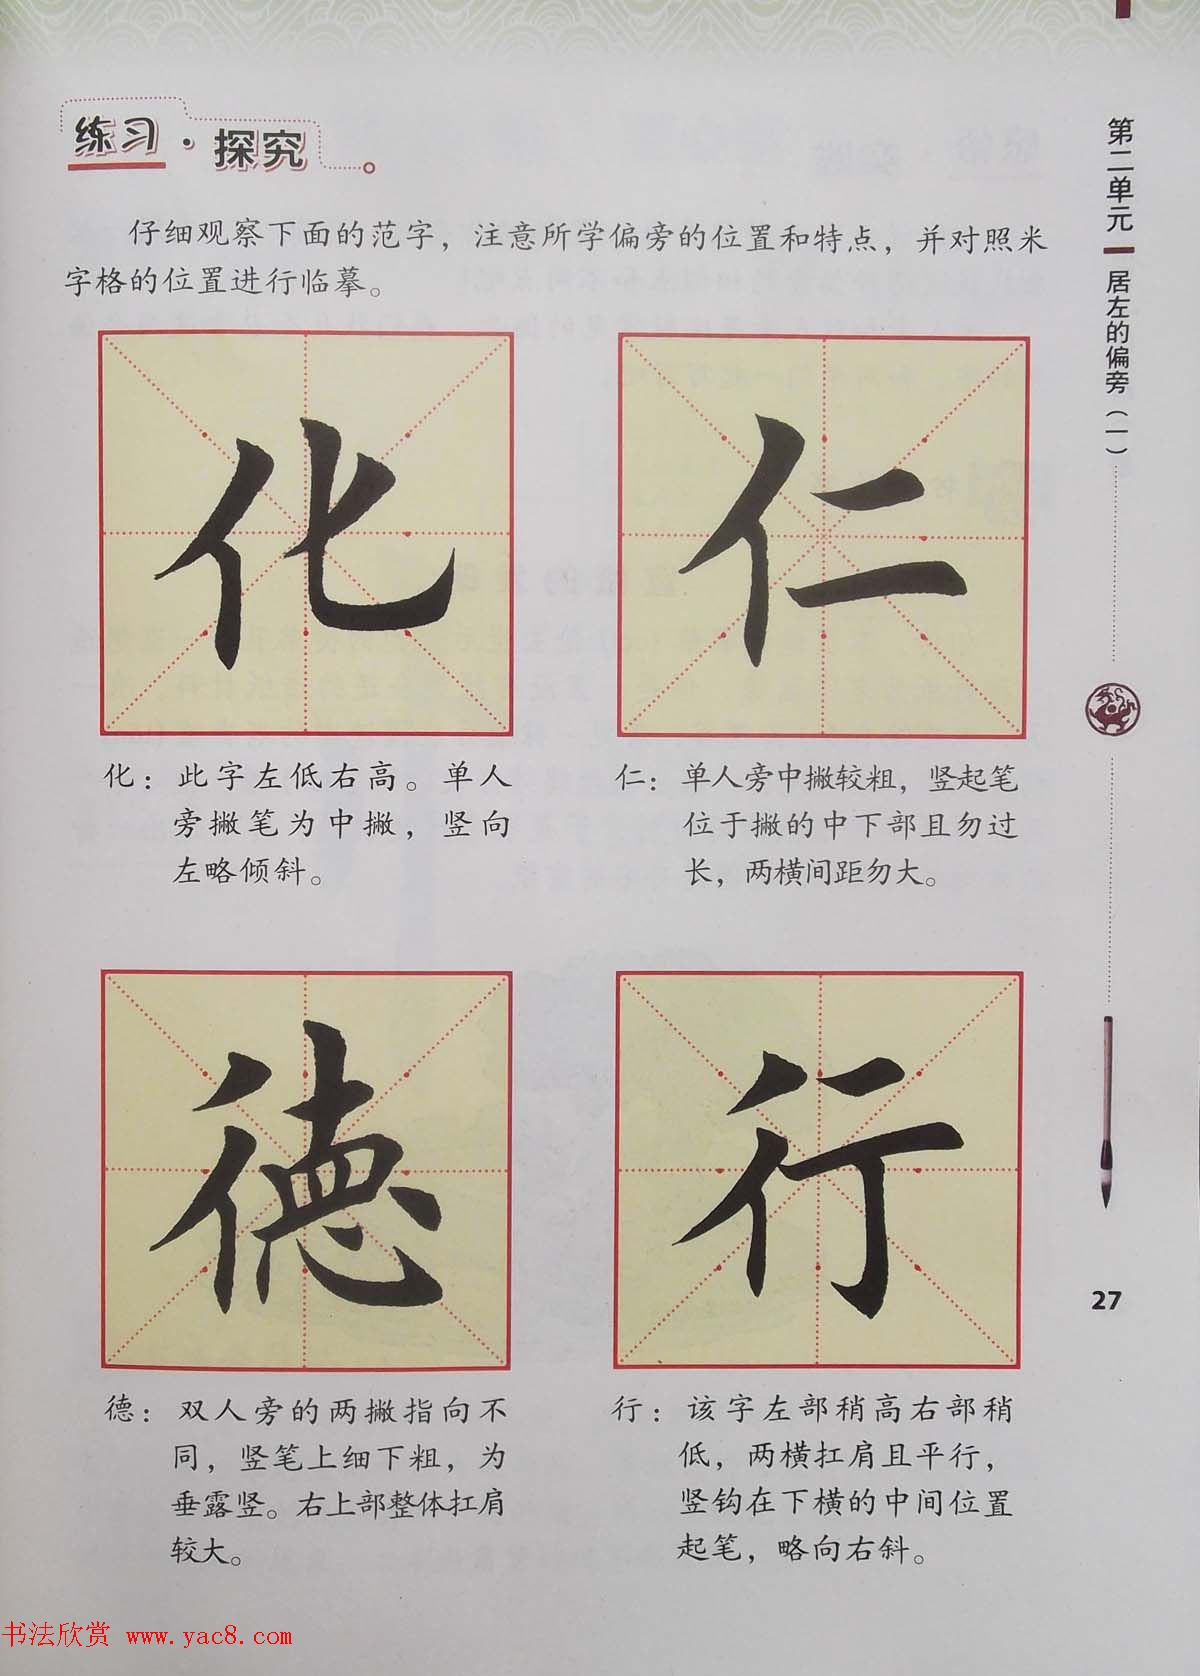 练习·探究
仔细观察下面的范字，注意所学偏旁的位置和特点，并对照米
字格的位置进行临摹。
化
仁
化：此字左低右高。单人
旁撇笔为中撇，竖向
左略倾斜。
仁：单人旁中撇较粗，竖起笔
位于撇的中下部且勿过
长，两横间距勿大。
德
行
德：双人旁的两撇指向不
同，竖笔上细下粗，为
垂露竖。右上部整体扛肩
较大。
行：该字左部稍高右部稍
低，两横扛肩且平行，
竖钩在下横的中间位置
起笔，略向右斜。
第二单元 居左的偏旁（一）
27
书法欣赏 www.yac8.com